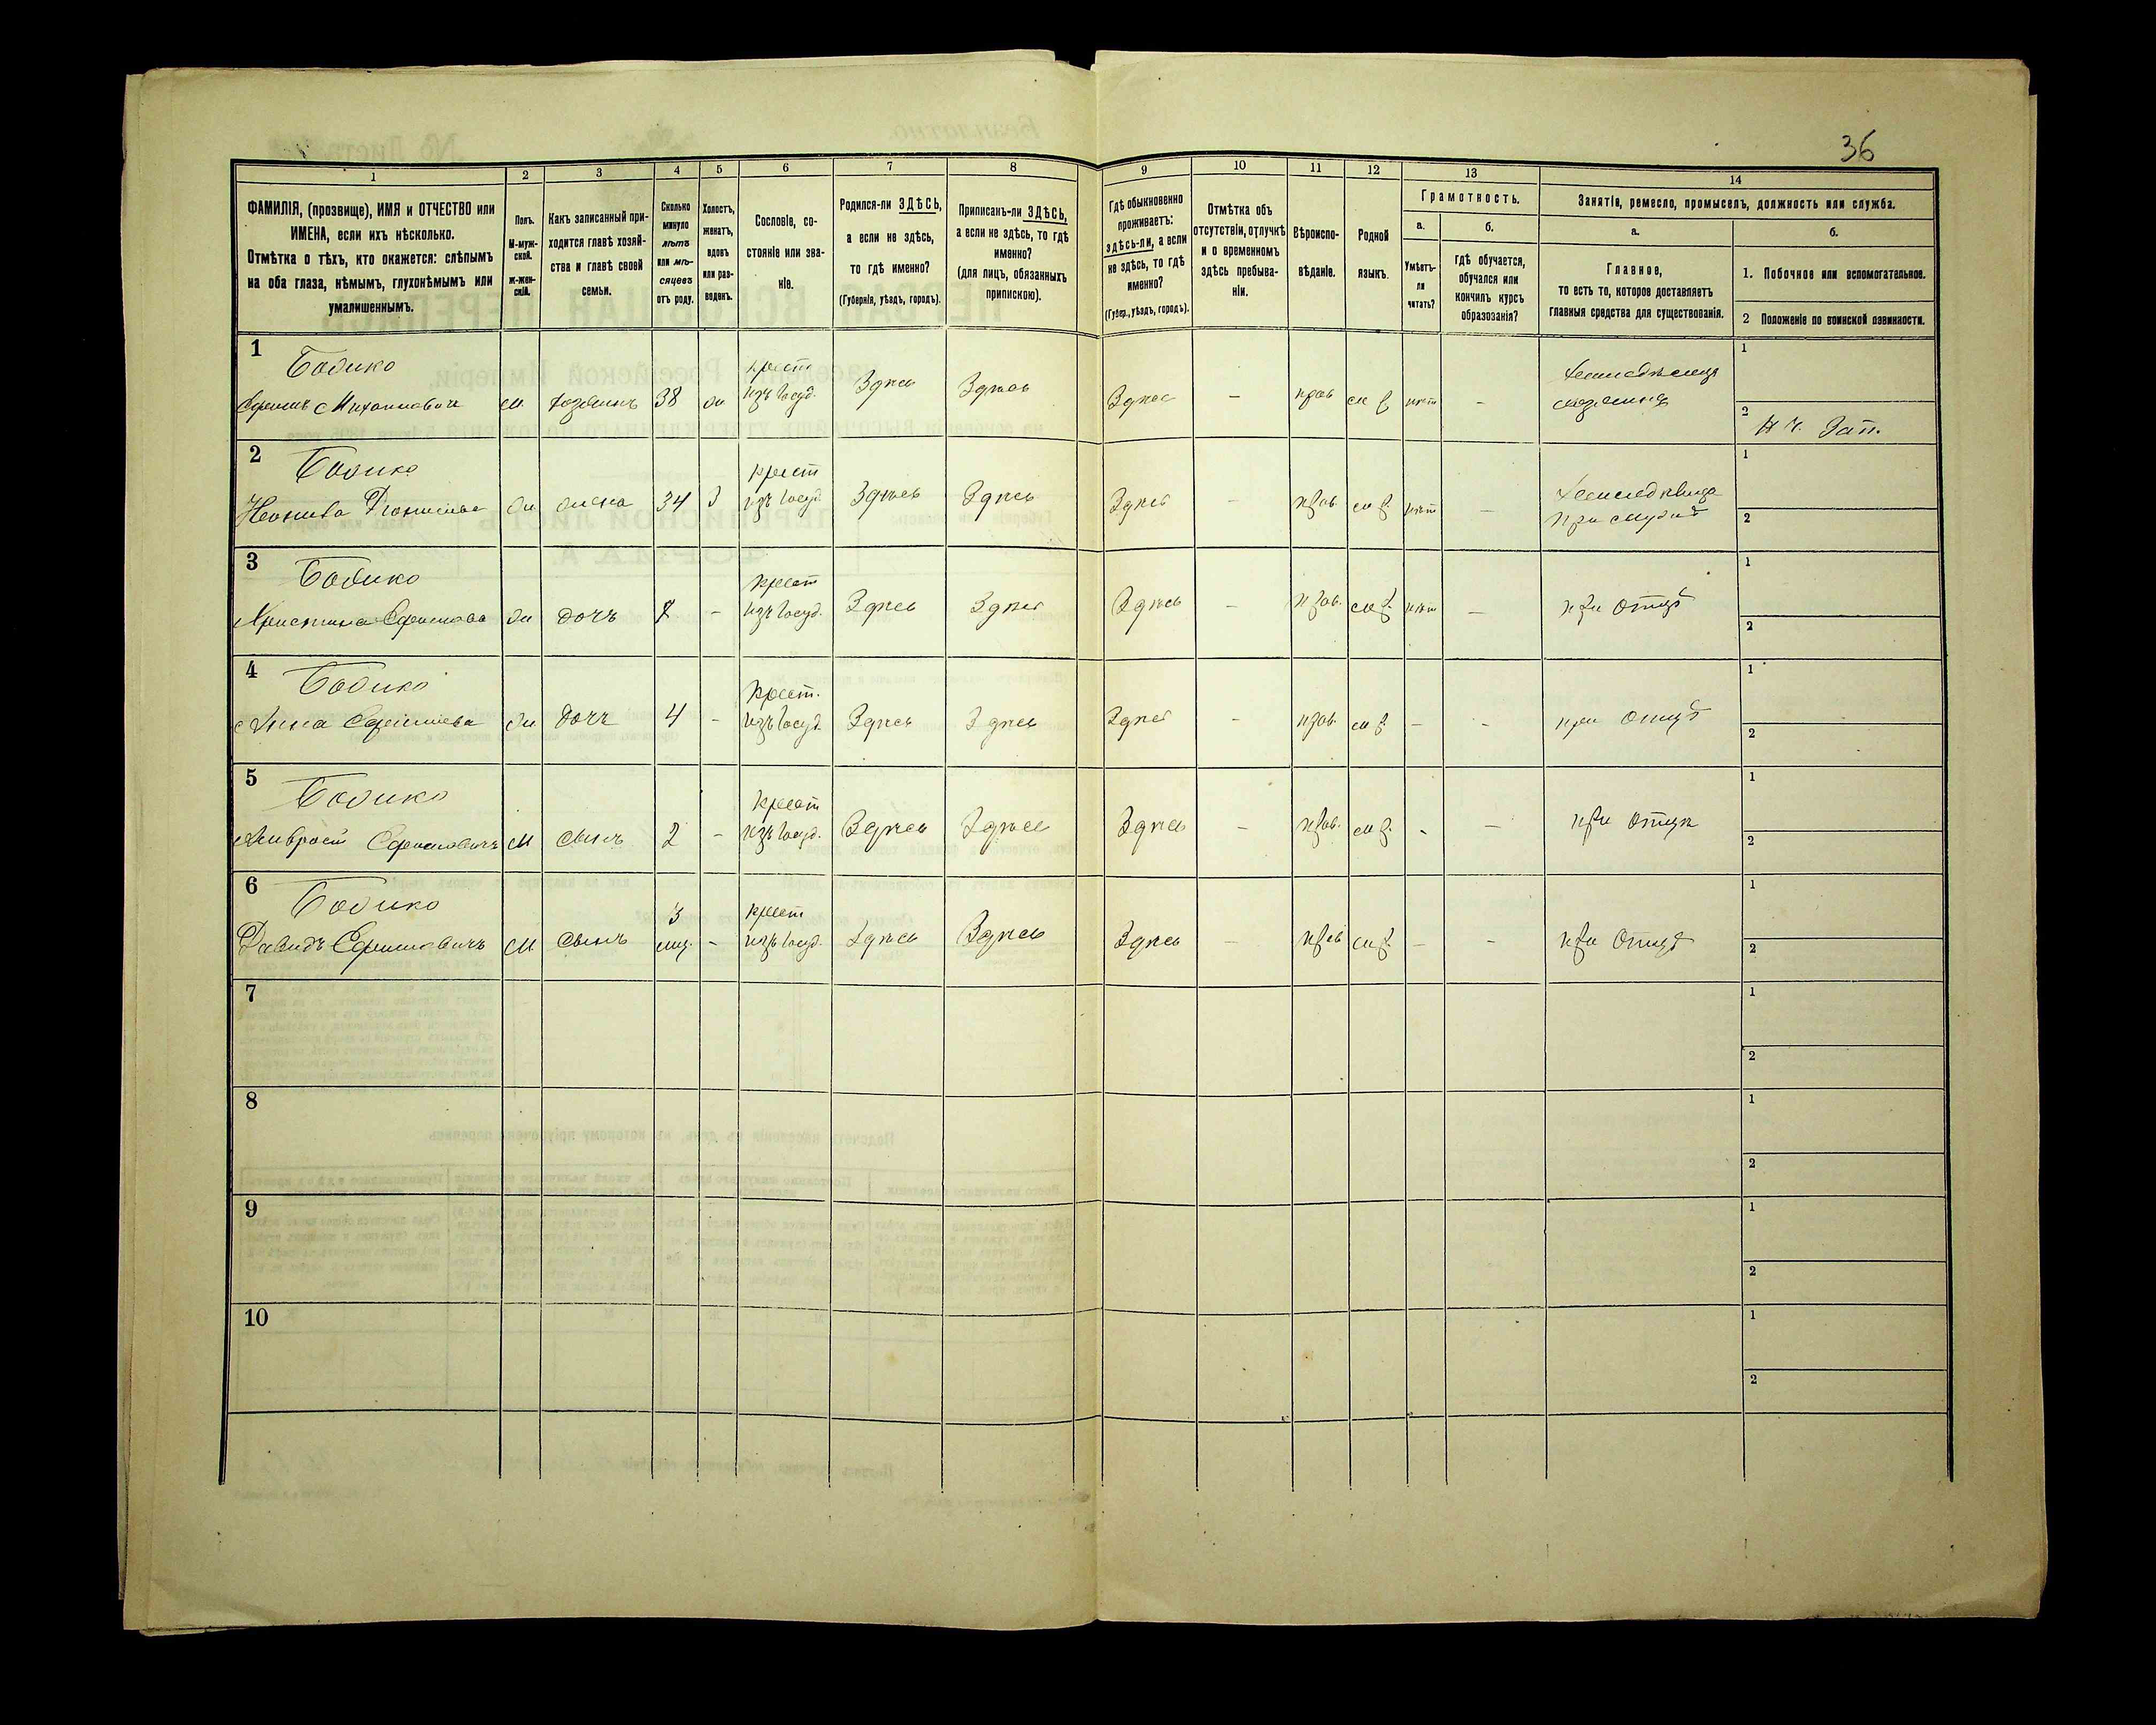 36
1 2 3 4 5 6 7 8 9 10 11 12 13 14
ФАМИЛІЯ, (прозвище), ИМЯ и ОТЧЕСТВО или
ИМЕНА, если ихъ нѣсколько.
Отмѣтка о тѣхъ, кто окажется: слѣпымъ
на оба глаза, нѣмымъ, глухонѣмымъ или
умалишеннымъ.
Полъ.
М-муж-
ской.
Ж-жен-
скій.
Какъ записанный при-
ходится главѣ хозяй-
ства и главѣ своей
семьи.
Сколько
минуло
лѣтъ
или мѣ-
сяцевъ
отъ роду.
Холостъ,
женатъ,
вдовъ
или раз-
веденъ.
Сословіе, со-
стояніе или зва-
ніе.
Родился-ли ЗДѢСЬ,
а если не здѣсь,
то гдѣ именно?
(Губернія, уѣздъ, городъ).
Приписанъ-ли ЗДѢСЬ,
а если не здѣсь, то гдѣ
именно?
(для лицъ, обязанныхъ
припискою).
Гдѣ обыкновенно
проживаетъ:
здѣсь-ли, а если
не здѣсь, то гдѣ
именно?
(Губер., уѣздъ, городъ).
Отмѣтка объ
отсутствіи, отлучкѣ
и о временномъ
здѣсь пребыва-
ніи.
Вѣроиспо-
вѣданіе.
Родной
языкъ.
Грамотность.
а.
Умѣетъ-
ли
читать?
б.
гдѣ обучается,
обучался или
кончилъ курсъ
образованія?
Занятія, ремесло, промыселъ, должность или служба.
а.
Главное,
то есть то, которое доставляетъ
главныя средства для существованія.
б.
1. Побочное или вспомогательное.
2 Положеніе по воинской повинности.
1
Бобико
Ефимъ Михайловичъ м хозяинъ 38 ж
крест
изъ Госуд. Здѣсь Здѣсь Здѣсь – прав нѣтъ –
1
2 Зап.
2
Бобико
жи жена 34 З
крест
изъ Госуд. Здѣсь Здѣсь Здѣсь – прав. нѣтъ –
при мужѣ
1
2
3
Бобико
Христина Ефимова жи дочь –
крест
изъ Госуд. Здѣсь Здѣсь Здѣсь – прав. нѣтъ – при отцѣ
1
2
4
Бобико
Анна Ефимова жи дочь 4 –
Крест.
изъ Госуд. Здѣсь Здѣсь Здѣсь – прав. – – при отцѣ
1
2
5
Бобико
Амвросій Ефимовичъ м сынъ 2 –
крест
изъ Госуд. Здѣсь Здѣсь Здѣсь – прав. – – при отцѣ
1
2
6
Бобико
Давидъ Ефимовичъ м сынъ 3
мц. –
крест
изъ Госуд. Здѣсь Здѣсь Здѣсь – прав – – при отцѣ
1
2
7
1
2
8
1
2
9
1
2
10
1
2